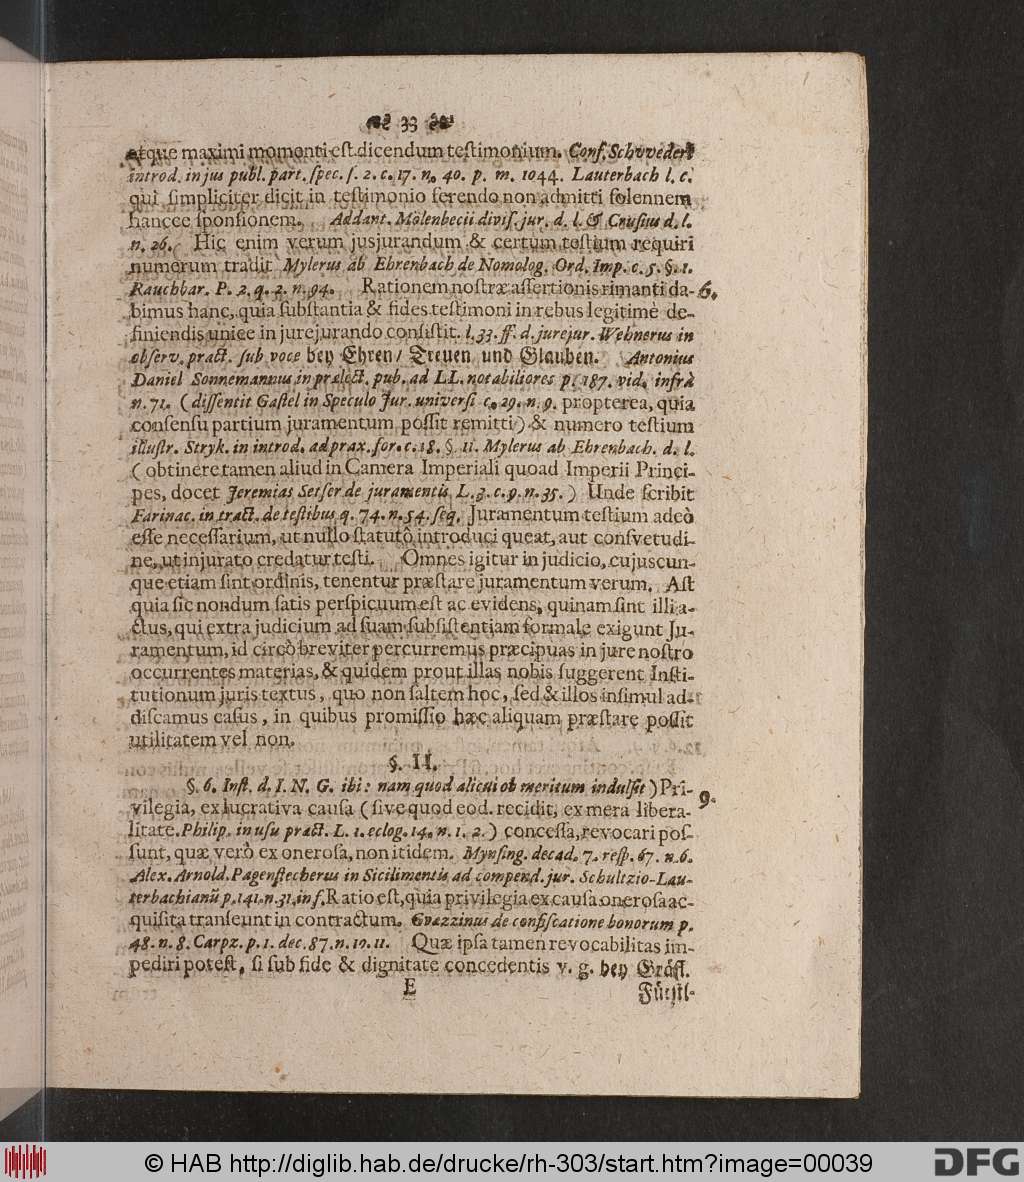 33
atque maximi momenti est dicendum testimonium. Conf. Schvveder
introd. in jus publ. part. spec. s. 2. c. 17. n. 40. p. m. 1044. Lauterbach l. c.
qui simpliciter dicit in testimonio ferendo non admitti solennem
hancce sponsionem. Addant. Mölenbecii divis. jur. d. l. & Crusius d. l.
n. 26. Hic enim verum jusjurandum & certum testium requiri
numerum tradit Mylerus ab Ehrenbach de Nomolog. Ord. Imp. c. 5. §. 1.
Rauchbar. P. 2. q. 2. n. 94. Rationem nostræ assertionis rimanti da- 6.
bimus hanc, quia substantia & fides testimoni in rebus legitimè de-
finiendis unice in jurejurando consistit. l. 33. ff. d. jurejur. Wehnerus in
observ. pract. sub voce bey Ehren/ Treuen und Glauben. Antonius
Daniel Sonnemannus in prælect. pub. ad LL. notabiliores p. 187. vid. infrà
n. 71. (dissentit Gastel in Speculo Jur. universi c. 29. n. 9. propterea, quia
consensu partium juramentum possit remitti) & numero testium
illustr. Stryk. in introd. ad prax. for. c. 18. §. 11. Mylerus ab Ehrenbach. d. l.
(obtinere tamen aliud in Camera Imperiali quoad Imperii Princi-
pes, docet Jeremias Setser de juramentis L. 3. c. 9. n. 35.) Unde scribit
Farinac. in tract. de testibus q. 74. n. 54. seq. Juramentum testium adeò
esse necessarium, ut nullo statutò introduci queat, aut consvetudi-
ne, ut injurato credatur testi. Omnes igitur in judicio, cujuscun-
que etiam sint ordinis, tenentur præstare juramentum verum. Ast
quia sic nondum satis perspicuum est ac evidens, quinam sint illi a-
ctus, qui extra judicium ad suam subsistentiam formale exigunt Ju-
ramentum, id circò breviter percurremus præcipuas in jure nostro
occurrentes materias, & quidem prout illas nobis suggerent Insti-
tutionum juris textus, quo non saltem hoc, sed & illos insimul ad-
discamus casus, in quibus promissio hæc aliquam præstare possit
utilitatem vel non.
§. II.
§. 6. Inst. d. I. N. G. ibi: nam quod alicui ob meritum indulsit) Pri-
vilegia, ex lucrativa causa (sive quod eod. recidit, ex mera libera- 9.
litate. Philip. in usu pract. L. 1. eclog. 14. n. 1. 2.) concessa, revocari pos-
sunt, quæ verò ex onerosa, non itidem. Mynsing. decad. 7. resp. 67. n. 6.
Alex. Arnold. Pagenstecherus in Sicilimentis ad compend. jur. Schultzio-Lau-
terbachianū p. 141. n. 31. in f. Ratio est, quia privilegia ex causa onerosa ac-
quisita transeunt in contractum. Guazzinus de confiscatione bonorum p.
48. n. 8. Carpz. p. 1. dec. 87. n. 10. 11. Quæ ipsa tamen revocabilitas im-
pediri potest, si sub fide & dignitate concedentis v. g. bey Gräfl.
E
Fürstl-
© HAB http://diglib.hab.de/drucke/rh-303/start.htm?image=00039
DFG